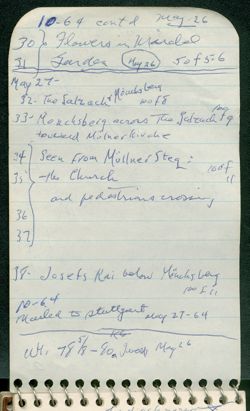 10-64 cont'd May-26
30 Flowers in Mirabel
31 Garden May 26 5 of 5-6
May 27-
32- The Salzach & Mönchsberg
10 of 8
33- Monchsberg across the Salzach 9
toward Mülnerkirche
34 Seen from Müllner Steg:
35 the Church 10 of 11
and pedestrians crossing
36
37
38- Josefs Kai below Mönchsberg
10 of 11
10-64
Mailed to Stuttgart May 27-64
Wt. 78 5/8 - May 26